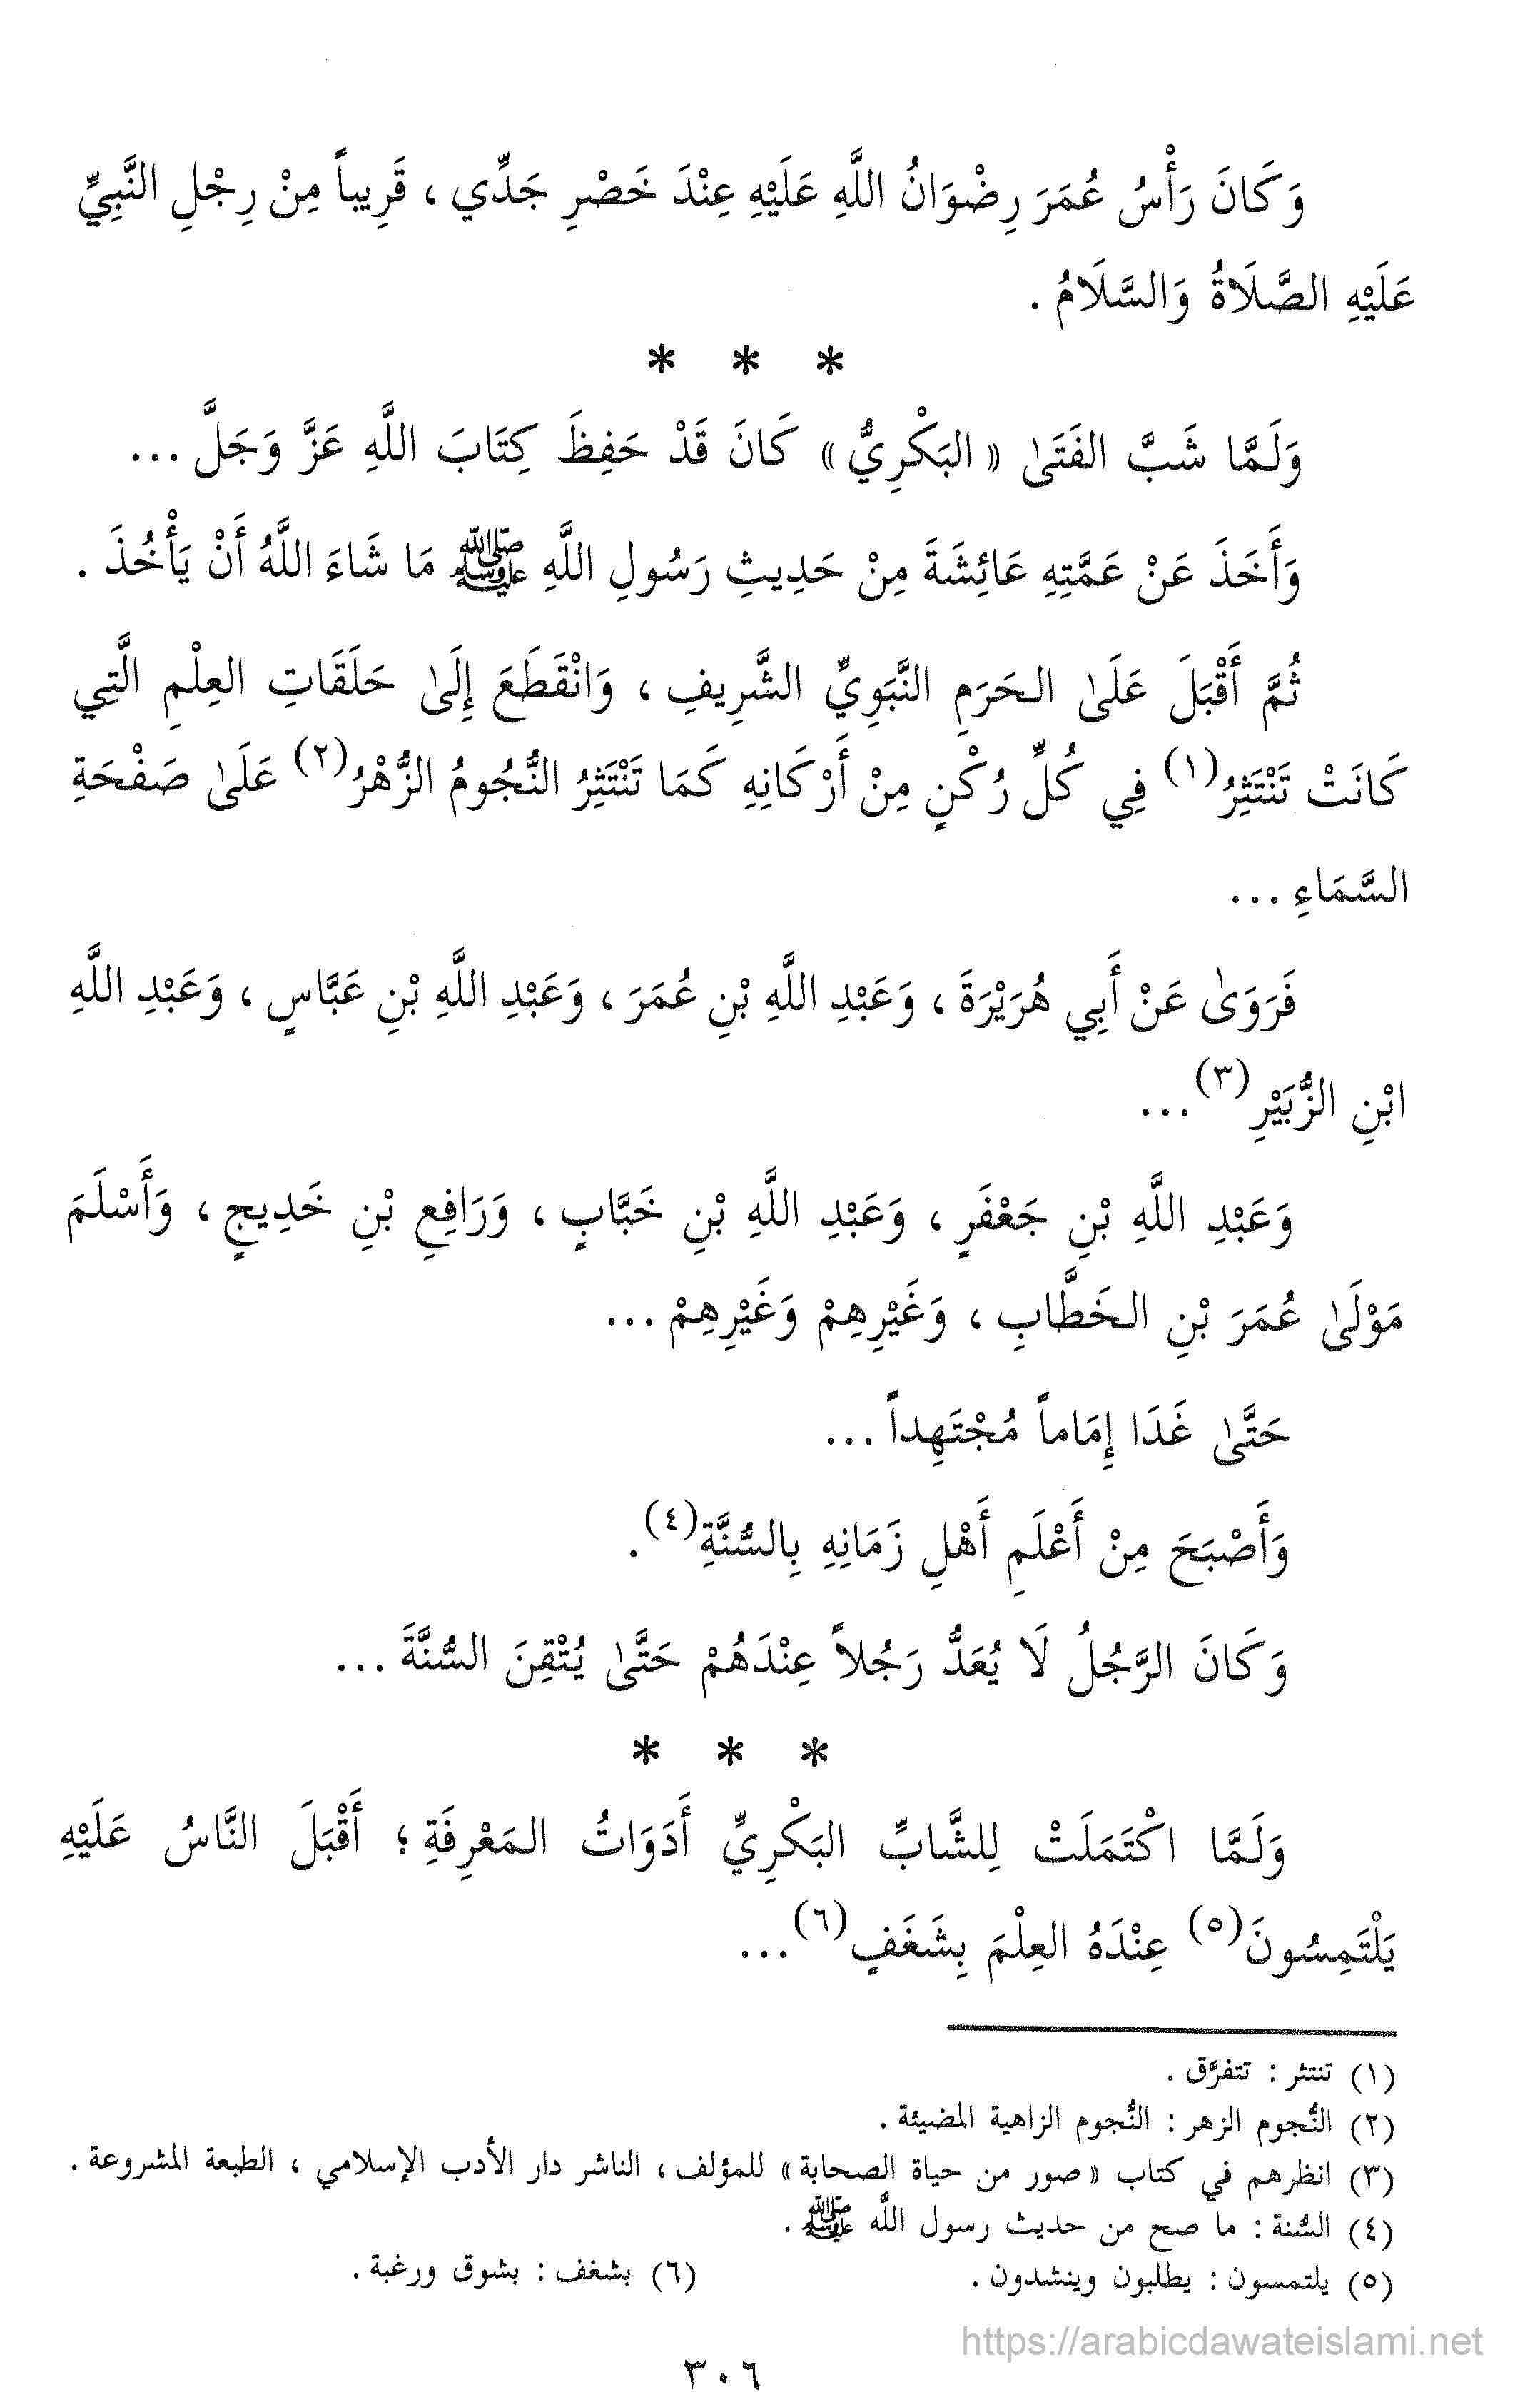 وَكَانَ رَأْسُ عُمَرَ رِضْوَانُ اللَّهِ عَلَيْهِ عِنْدَ خَصْرِ جَدِّي ، قَرِيباً مِنْ رِجْلِ النَّبِيِّ
عَلَيْهِ الصَّلَاةُ وَالسَّلَامُ .
* * *
وَلَمَّا شَبَّ الفَتَىٰ « البَكْرِيُّ » كَانَ قَدْ حَفِظَ كِتَابَ اللَّهِ عَزَّ وَجَلَّ ...
وَأَخَذَ عَنْ عَمَّتِهِ عَائِشَةَ مِنْ حَدِيثِ رَسُولِ اللَّهِ ﷺ مَا شَاءَ اللَّهُ أَنْ يَأْخُذَ .
ثُمَّ أَقْبَلَ عَلَىٰ الحَرَمِ النَّبَوِيِّ الشَّرِيفِ ، وَانْقَطَعَ إِلَىٰ حَلَقَاتِ العِلْمِ الَّتِي
كَانَتْ تَنْتَثِرُ(١) فِي كُلِّ رُكْنٍ مِنْ أَرْكَانِهِ كَمَا تَنْتَثِرُ النُّجُومُ الزُّهْرُ(٢) عَلَىٰ صَفْحَةِ
السَّمَاءِ ...
فَرَوَىٰ عَنْ أَبِي هُرَيْرَةَ ، وَعَبْدِ اللَّهِ بْنِ عُمَرَ ، وَعَبْدِ اللَّهِ بْنِ عَبَّاسٍ ، وَعَبْدِ اللَّهِ
ابْنِ الزُّبَيْرِ(٣) ...
وَعَبْدِ اللَّهِ بْنِ جَعْفَرٍ ، وَعَبْدِ اللَّهِ بْنِ خَبَّابٍ ، وَرَافِعِ بْنِ خَدِيجٍ ، وَأَسْلَمَ
مَوْلَىٰ عُمَرَ بْنِ الخَطَّابِ ، وَغَيْرِهِمْ وَغَيْرِهِمْ ...
حَتَّىٰ غَدَا إِمَاماً مُجْتَهِداً ...
وَأَصْبَحَ مِنْ أَعْلَمِ أَهْلِ زَمَانِهِ بِالسُّنَّةِ(٤) .
وَكَانَ الرَّجُلُ لَا يُعَدُّ رَجُلاً عِنْدَهُمْ حَتَّىٰ يُتْقِنَ السُّنَّةَ ...
* * *
وَلَمَّا اكْتَمَلَتْ لِلشَّابِّ البَكْرِيِّ أَدَوَاتُ المَعْرِفَةِ ؛ أَقْبَلَ النَّاسُ عَلَيْهِ
يَلْتَمِسُونَ(٥) عِنْدَهُ العِلْمَ بِشَغَفٍ(٦) ...
(١) تنتثر : تتفرَّق .
(٢) النُّجوم الزهر : النُّجوم الزاهية المضيئة .
(٣) انظرهم في كتاب « صور من حياة الصحابة » للمؤلف ، الناشر دار الأدب الإسلامي ، الطبعة المشروعة .
(٤) السُّنة : ما صح من حديث رسول اللَّه ﷺ .
(٥) يلتمسون : يطلبون وينشدون . (٦) بشغف : بشوق ورغبة .
https://arabicdawateislami.net
٣٠٦